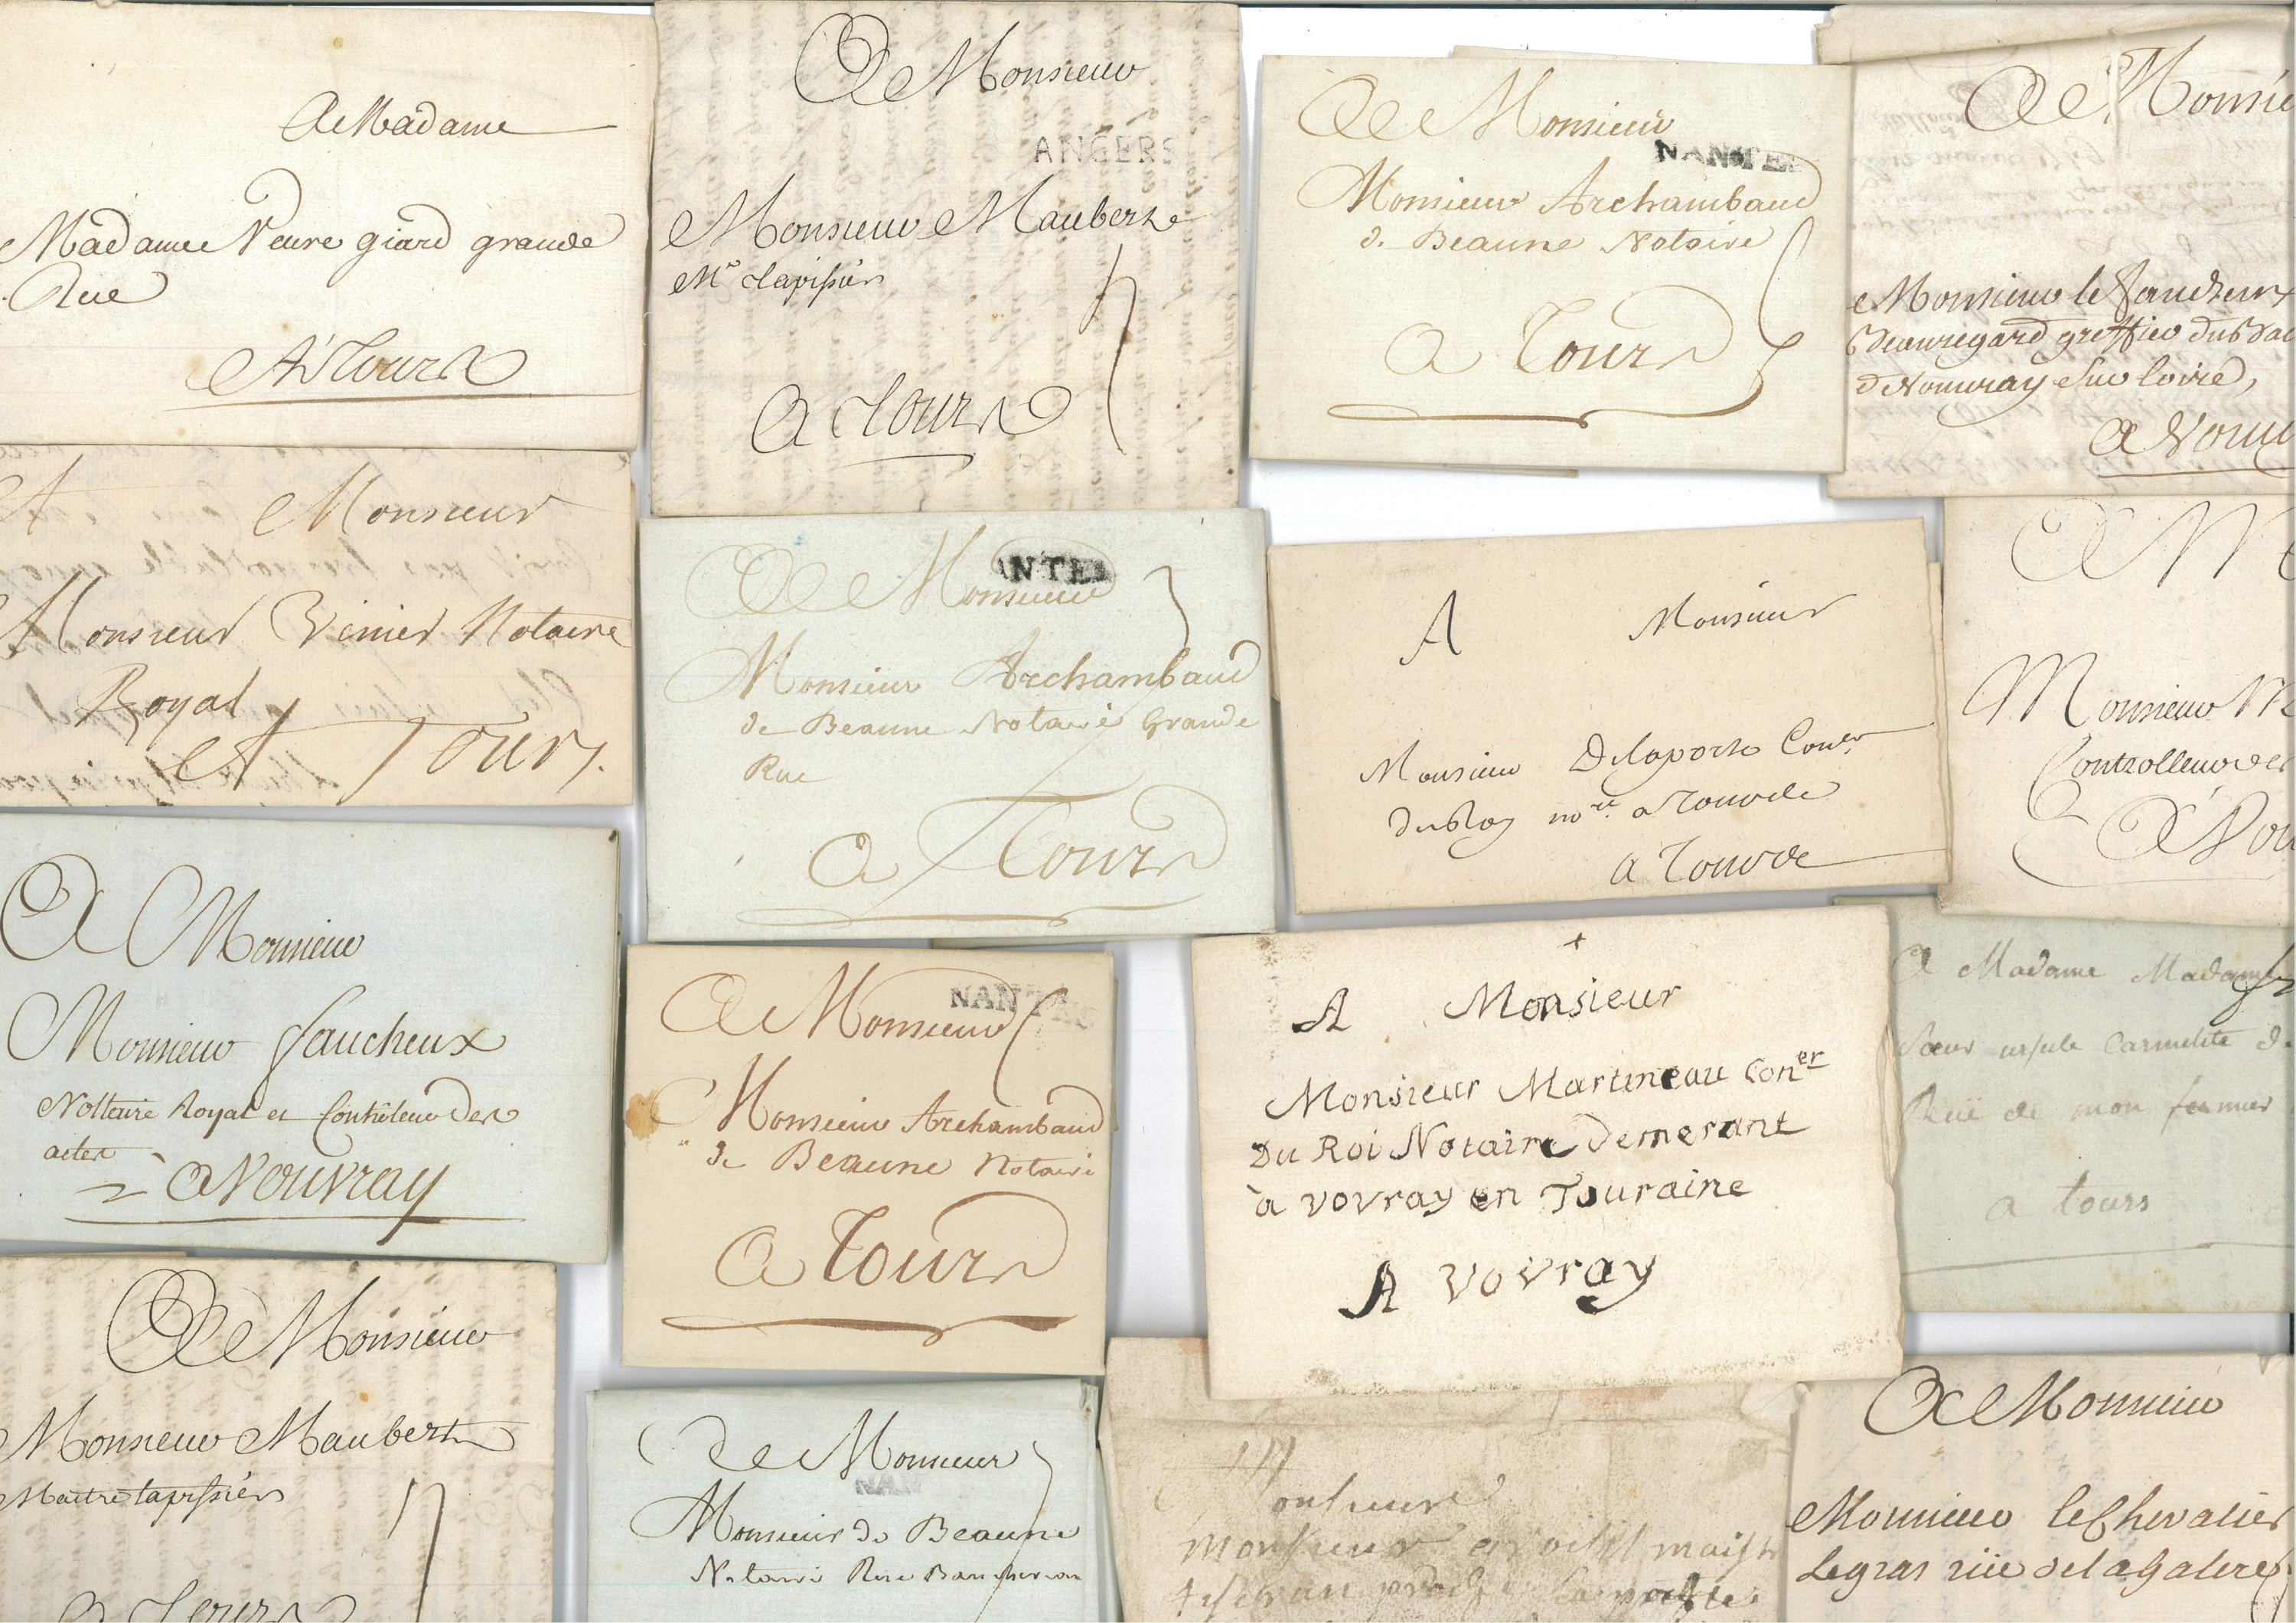 A Madame
Madame Veuve giard grande
Rue
A Tours
A Monsieur
ANGERS
Monsieur Maubert
Me tapissier
A Tours
A Monsieur
NANTES
Monsieur Archambaud
de Beaune Notaire
A Tours
A Monsie
Monsieur le faucheux
Beauregard greffier du Bai
de Vouvray sur Loire,
A Vouv
A Monsieur
Monsieur Vinier Notaire
Royal
A Tours.
A Monsieur
ANTES
Monsieur Archambaud
de Beaune Notaire Grande
Rue
A Tours
A Monsieur
Monsieur Delaporte Coner
du Roy nore a
a
A M
Monsieur
Controlleur des
A Vou
A Monsieur
Monsieur faucheux
Nottaire Royal et Contrôleur des
actes
A Vouvray
A Monsieur
NANTES
Monsieur Archambaud
de Beaune Notaire
A Tours
+
A Monsieur
Monsieur Martineau Coner
Du Roi Notaire Demerant
à vovray en Touraine
A vovray
A Madame Madame
Sœur ursule Carmelite d
Rue de mon
a tours
A Monsieur
Monsieur Maubert
Maitre tapissier
A Tours
A Monsieur
NAN
Monsieur de Beaune
Notaire Rue
Monsieur
Monsieur maistr
proche
A Monsieur
Monsieur le Chevalier
Legras rüe de la galere